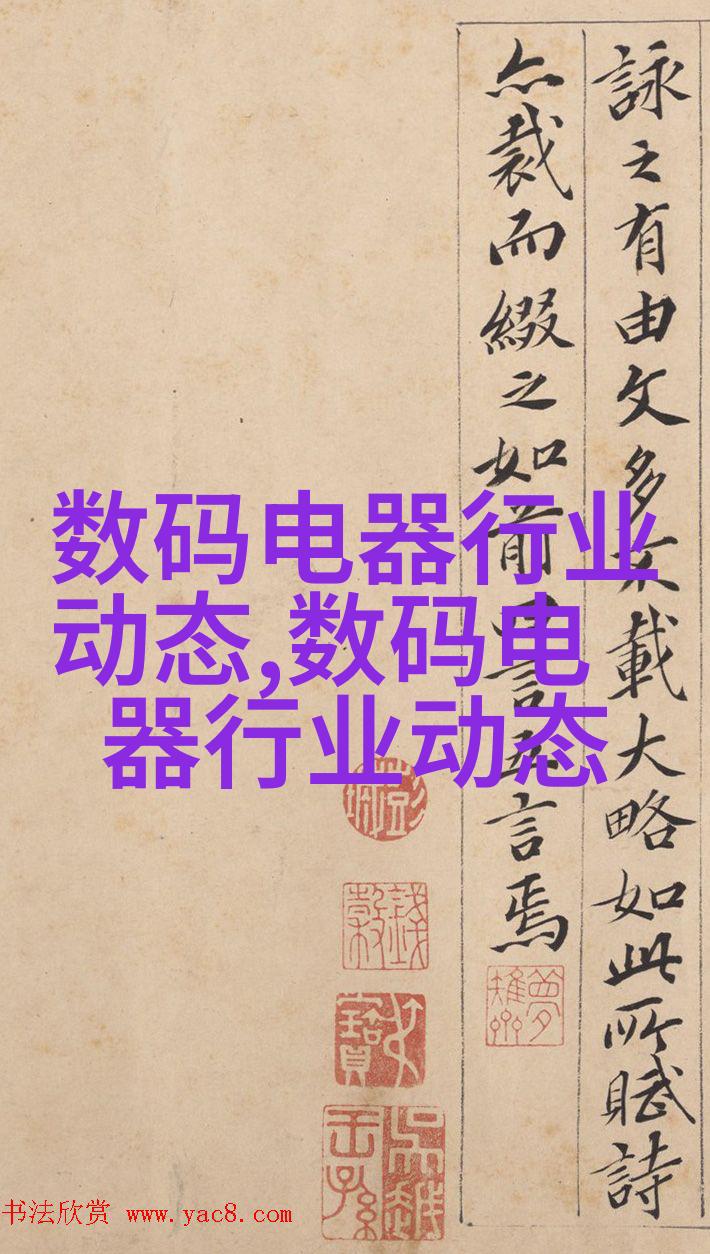 詠之有由文多不載大略如此所賦詩
亦裁而綴之如前四言五言焉
数码电器行业
动态,数码电
器行业动态
书法欣赏 www.yac8.com